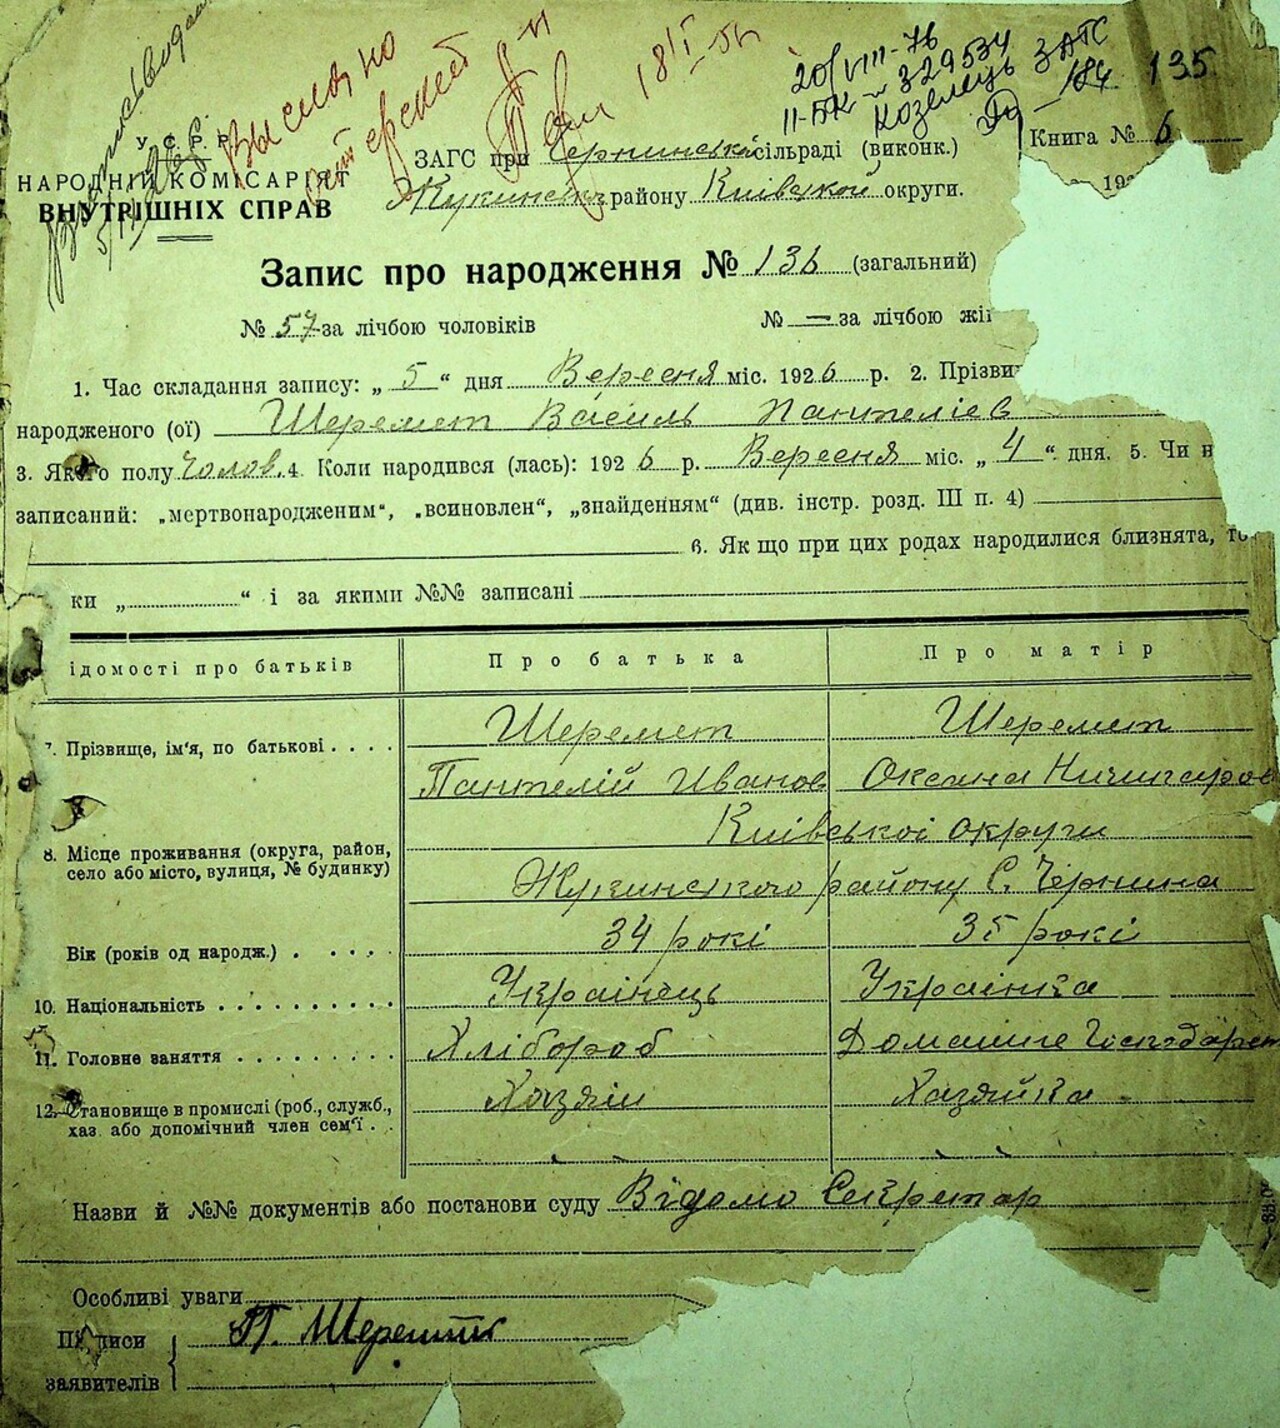 20/VIII-76
II-БК № 329534
Козелець ЗАГС
184 135
Выслано
18/I-54
У.С.Р.Р.
НАРОДНІЙ КОМІСАРІЯТ
ВНУТРІШНІХ СПРАВ
ЗАГС при Чернинській сільраді (виконк.) Книга № 6
Жукинськ району Київської округи. 192
Запис про народження № 136 (загальний)
№ 57 за лічбою чоловіків № — за лічбою жі
1. Час складання запису: „ 5 “ дня Вересня міс. 1926 р. 2. Прізви
народженого (ої) Шеремет Василь Пантеліев
3. Якого полу Чолов. 4. Коли народився (лась): 1926 р. Вересня міс. „ 4 “ дня. 5. Чи н
записаний: „мертвонародженим“, „всиновлен“, „знайденням“ (див. інстр. розд. III п. 4)
6. Як що при цих родах народилися близнята, то
ки „ “ і за якими №№ записані
ідомості про батьків Про батька Про матір
7. Прізвище, ім'я, по батькові Шеремет Шеремет
Пантелій Иванов Оксана Ничипоров
8. Місце проживання (округа, район, Київськоі округи
село або місто, вулиця, № будинку) Жукинського району С. Чернина
Вік (років од народж.) 34 рокі 35 рокі
10. Національність Украінець Украінка
11. Головне заняття Хлібороб Домашне Господарст
12. Становище в промислі (роб., служб., Хазяін Хазяйка
хаз. або допомічний член сем'ї
Назви й №№ документів або постанови суду Відомо Секретар
Особливі уваги
Підписи П. Шеремет
заявителів